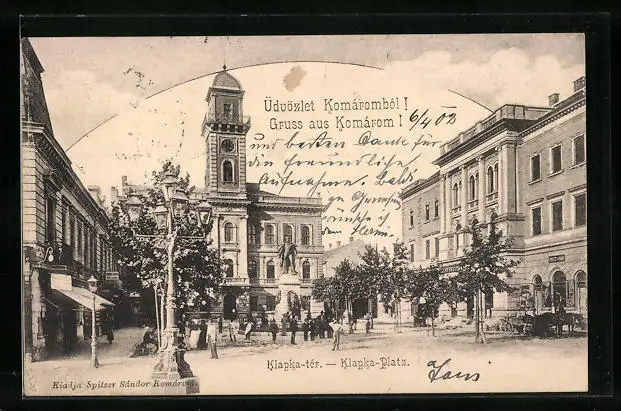 Üdvözlet Komáromból!
Gruss aus Komárom! 6/4 03
und besten Dank für
die freundliche
Aufnahme. Bald
Klapka-tér. — Klapka-Platz.
Kiadja Spitzer Sándor Komárom.